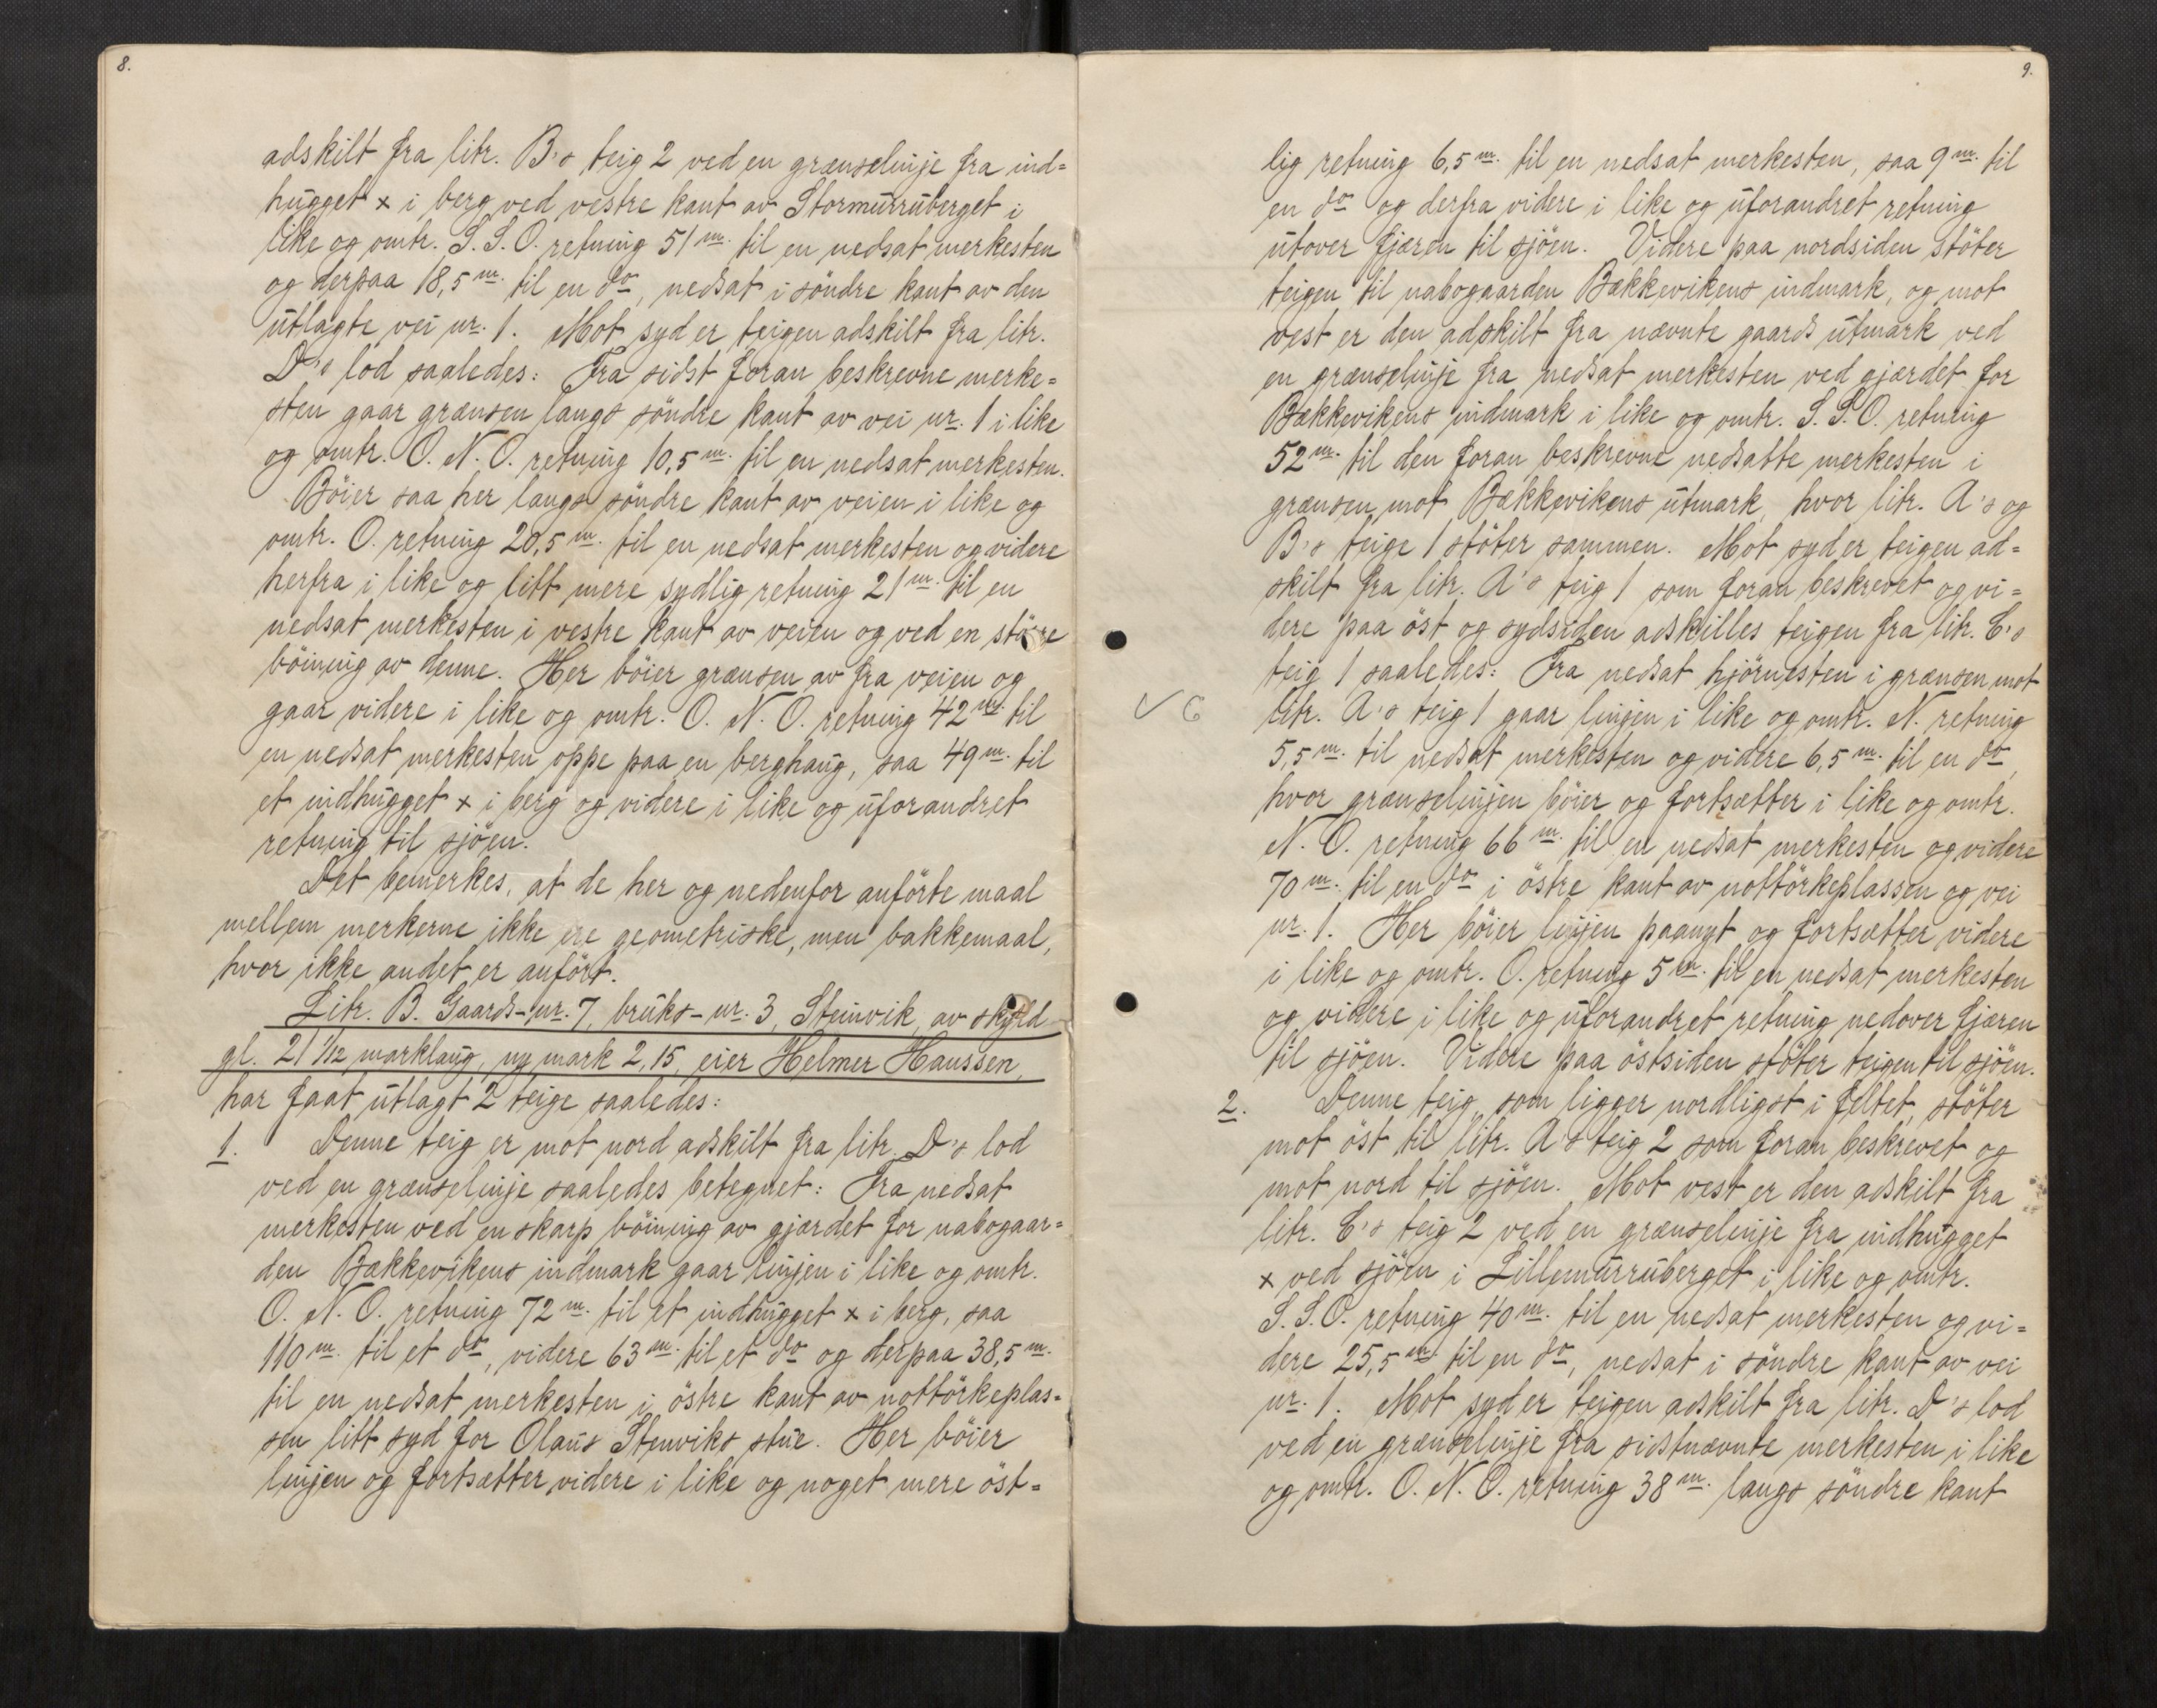 8.
adskilt fra litr. B's teig 2 ved en grænselinje fra ind=
hugget x i berg ved vestre kant av Stormurruberget i
like og omtr. S. S. O. retning 51 m. til en nedsat merkesten
og derpaa 18,5 m. til en do, nedsat i söndre kant av den
utlagte vei nr. 1. Mot syd er teigen adskilt fra litr.
D's lod saaledes: Fra sidst foran beskrevne merke=
sten gaar grænsen langs söndre kant av vei nr. 1 i like
og omtr. O. N. O. retning 10,5 m. til en nedsat merkesten.
Böier saa her langs söndre kant av veien i like og
omtr. O. retning 20,5 m. til en nedsat merkesten og videre
herfra i like og litt mere sydlig retning 21 m. til en
nedsat merkesten i vestre kant av veien og ved en större
böining av denne. Her böier grænsen av fra veien og
gaar videre i like og omtr. O. N. O. retning 42 m. til
en nedsat merkesten oppe paa en berghaug, saa 49 m. til
et indhugget x i berg og videre i like og uforandret
retning til sjöen.
Det bemerkes, at de her og nedenfor anförte maal
mellem merkerne ikke ere geometriske, men bakkemaal,
hvor ikke andet er anfört.
Litr. B. Gaards-nr. 7, bruks-nr. 3, Steinvik, av skyld
gl. 21 1/12 marklaug, ny mark 2,15, eier Helmer Hanssen,
har faat utlagt 2 teige saaledes:
1. Denne teig er mot nord adskilt fra litr. D's lod
ved en grænselinje saaledes betegnet: Fra nedsat
merkesten ved en skarp böining av gjærdet for nabogaar=
den Bækkevikens indmark gaar linjen i like og omtr.
O. N. O. retning 72 m. til et indhugget x i berg, saa
110 m. til et do, videre 63 m. til et do og derpaa 38,5 m.
til en nedsat merkesten i östre kant av nottörkeplas=
sen litt syd for Olaus Stenviks stue. Her böier
linjen og fortsætter videre i like og noget mere öst=
9.
lig retning 6,5 m. til en nedsat merkesten, saa 9 m. til
en do og derfra videre i like og uforandret retning
utover fjæren til sjöen. Videre paa nordsiden stöter
teigen til nabogaarden Bækkevikens indmark, og mot
vest er den adskilt fra nævnte gaards utmark ved
en grænselinje fra nedsat merkesten ved gjærdet for
Bækkevikens indmark i like og omtr. S. S. O. retning
52 m. til den foran beskrevne nedsatte merkesten i
grænsen mot Bækkevikens utmark, hvor litr. A's og
B's teige 1 stöter sammen. Mot syd er teigen ad=
skilt fra litr. A's teig 1 som foran beskrevet og vi=
dere paa öst og sydsiden adskilles teigen fra litr. C's
teig 1 saaledes: Fra nedsat hjörnesten i grænsen mot
litr. A's teig 1 gaar linjen i like og omtr. N. retning
5,5 m. til nedsat merkesten og videre 6,5 m. til en do,
hvor grænselinjen böier og fortsætter i like og omtr.
N. O. retning 66 m. til en nedsat merkesten og videre
70 m. til en do i östre kant av nottörkeplassen og vei
nr. 1. Her böier linjen paanyt og fortsætter videre
i like og omtr. O. retning 5 m. til en nedsat merkesten
og videre i like og uforandret retning nedover fjæren
til sjöen. Videre paa östsiden stöter teigen til sjöen.
2. Denne teig, som ligger nordligst i feltet, stöter
mot öst til litr. A's teig 2 som foran beskrevet og
mot nord til sjöen. Mot vest er den adskilt fra
litr. C's teig 2 ved en grænselinje fra indhugget
x ved sjöen i Lillemurruberget i like og omtr.
S. S. O. retning 40 m. til en nedsat merkesten og vi=
dere 25,5 m. til en do, nedsat i söndre kant av vei
nr. 1. Mot syd er teigen adskilt fra litr. D's lod
ved en grænselinje fra sidstnævnte merkesten i like
og omtr. O. N. O. retning 38 m. langs söndre kant